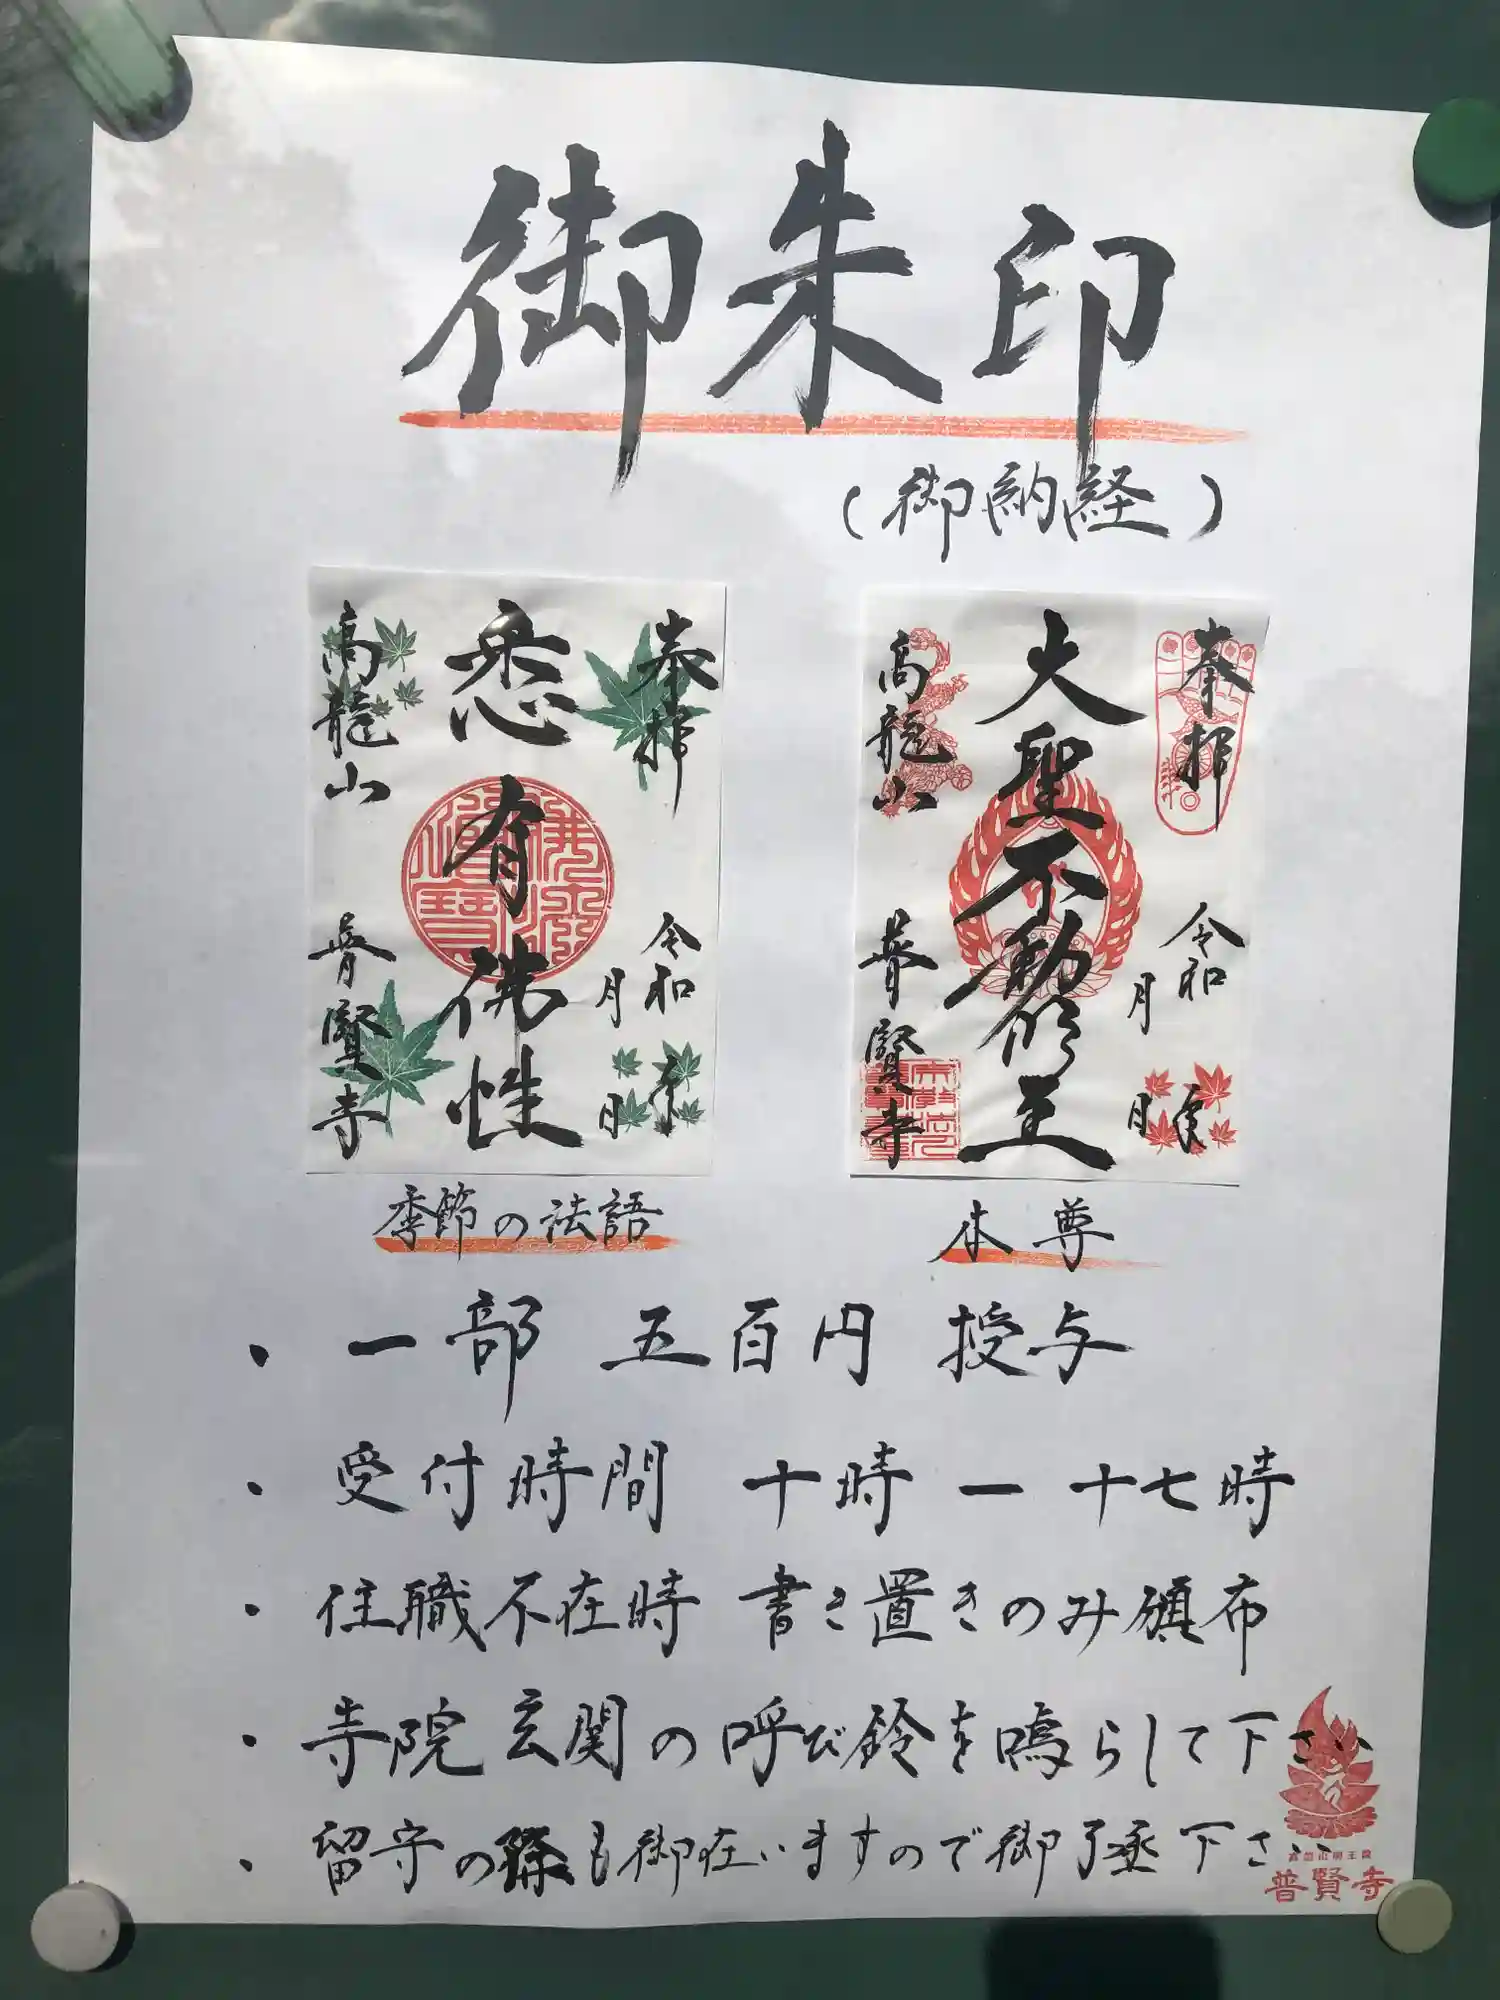 御朱印
(御納経)
奉拝
大聖不動明王
令和 年
月 日
高龍山
普賢寺
本尊
奉拝
悉有佛性
令和 年
月 日
高龍山
普賢寺
季節の法語
・一部 五百円 授与
・受付時間 十時ー十七時
・住職不在時 書き置きのみ頒布
・寺院玄関の呼び鈴を鳴らして下さい
・留守の際も御在いますので御了承下さい
高龍山明王院
普賢寺